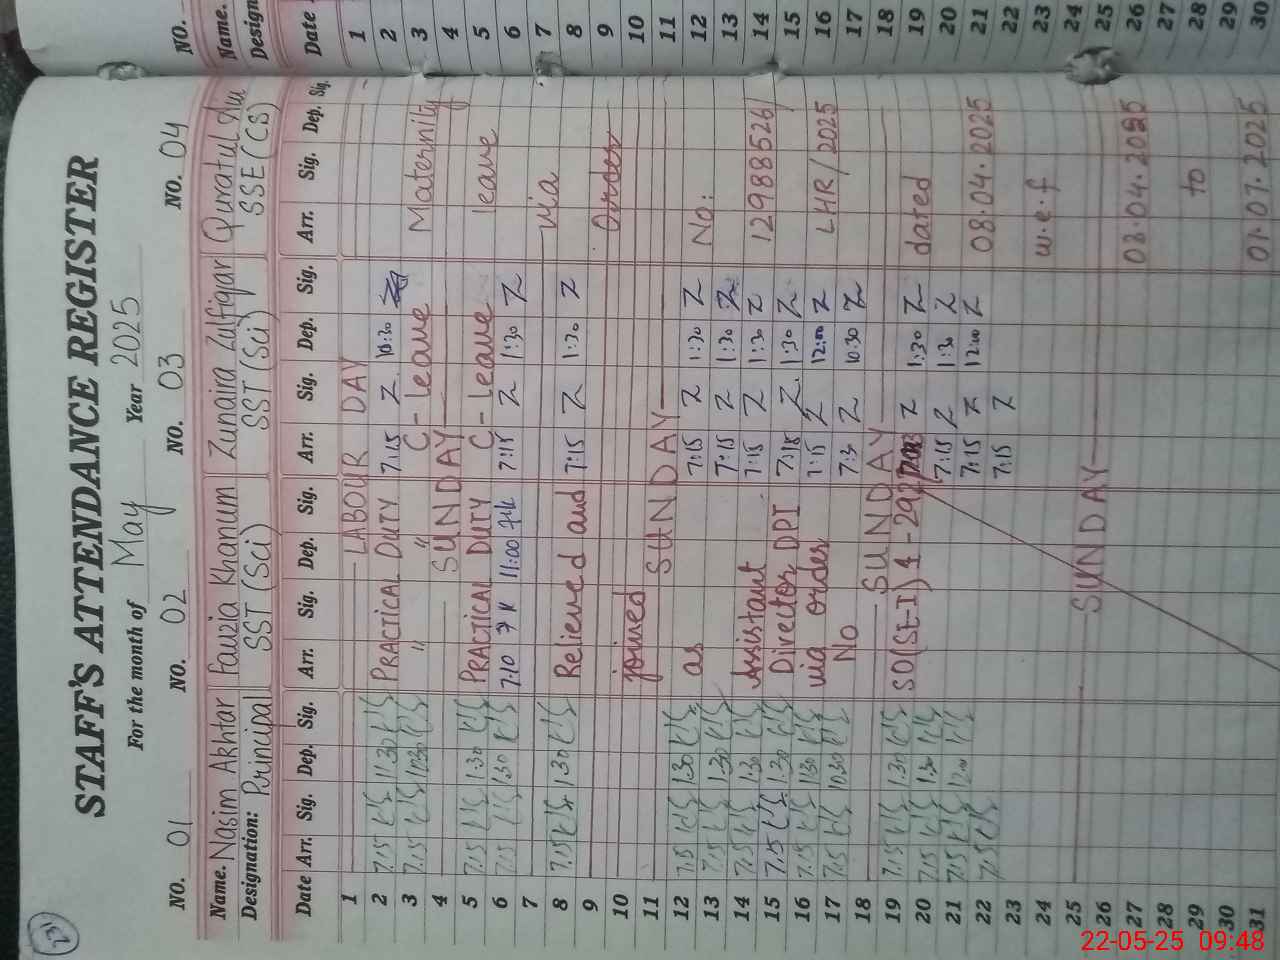 231
STAFF'S ATTENDANCE REGISTER
For the month of May Year 2025
NO. 01 NO. 02 NO. 03 NO. 04 NO.
Name. Nasim Akhtar Fauzia Khanum Zumaira Zulfiqar Quratul Ain Name.
Designation: Principal SST (Sci) SST (Sci) SSE (CS) Design
Date Arr. Sig. Dep. Sig. Arr. Sig. Dep. Sig. Arr. Sig. Dep. Sig. Arr. Sig. Dep. Sig. Date
1 LABOUR DAY 1
2 7.15 11.30 PRACTICAL DUTY 7.15 Z 10:30 2
3 7.15 10:30 " " C - leave Maternity 3
4 SUNDAY 4
5 7.15 1.30 PRACTICAL DUTY C - leave leave 5
6 7.15 1.30 7:10 11:00 7:15 Z 1:30 Z 6
7 via 7
8 7.15 1.30 Relieved and 7:15 Z 1:30 Z 8
9 Order 9
10 joined 10
11 SUNDAY 11
12 7.15 1.30 as 7:15 Z 1:30 Z No: 12
13 7.15 1.30 7:15 Z 1:30 Z 13
14 7.15 1:30 Assistant 7:15 Z 1:30 Z 12988526/ 14
15 7.15 1.30 Director DPI 7:15 Z 1:30 Z 15
16 7.15 1:30 via order 7:15 Z 12:00 Z LHR/2025 16
17 7.15 10.30 No 7:3 Z 10:30 Z 17
18 SUNDAY 18
19 7.15 1.30 SO(SE-I) 4-29 Z 1:30 Z dated 19
20 7.15 1.30 7:15 Z 1:30 Z 20
21 7.15 12.00 7:15 Z 12:00 Z 08.04.2025 21
22 7.15 7:15 Z 22
23 w.e.f 23
24 24
25 SUNDAY 25
26 08.04.2025 26
27 27
28 to 28
29 29
30 01.07.2025 30
31
22-05-25 09:48